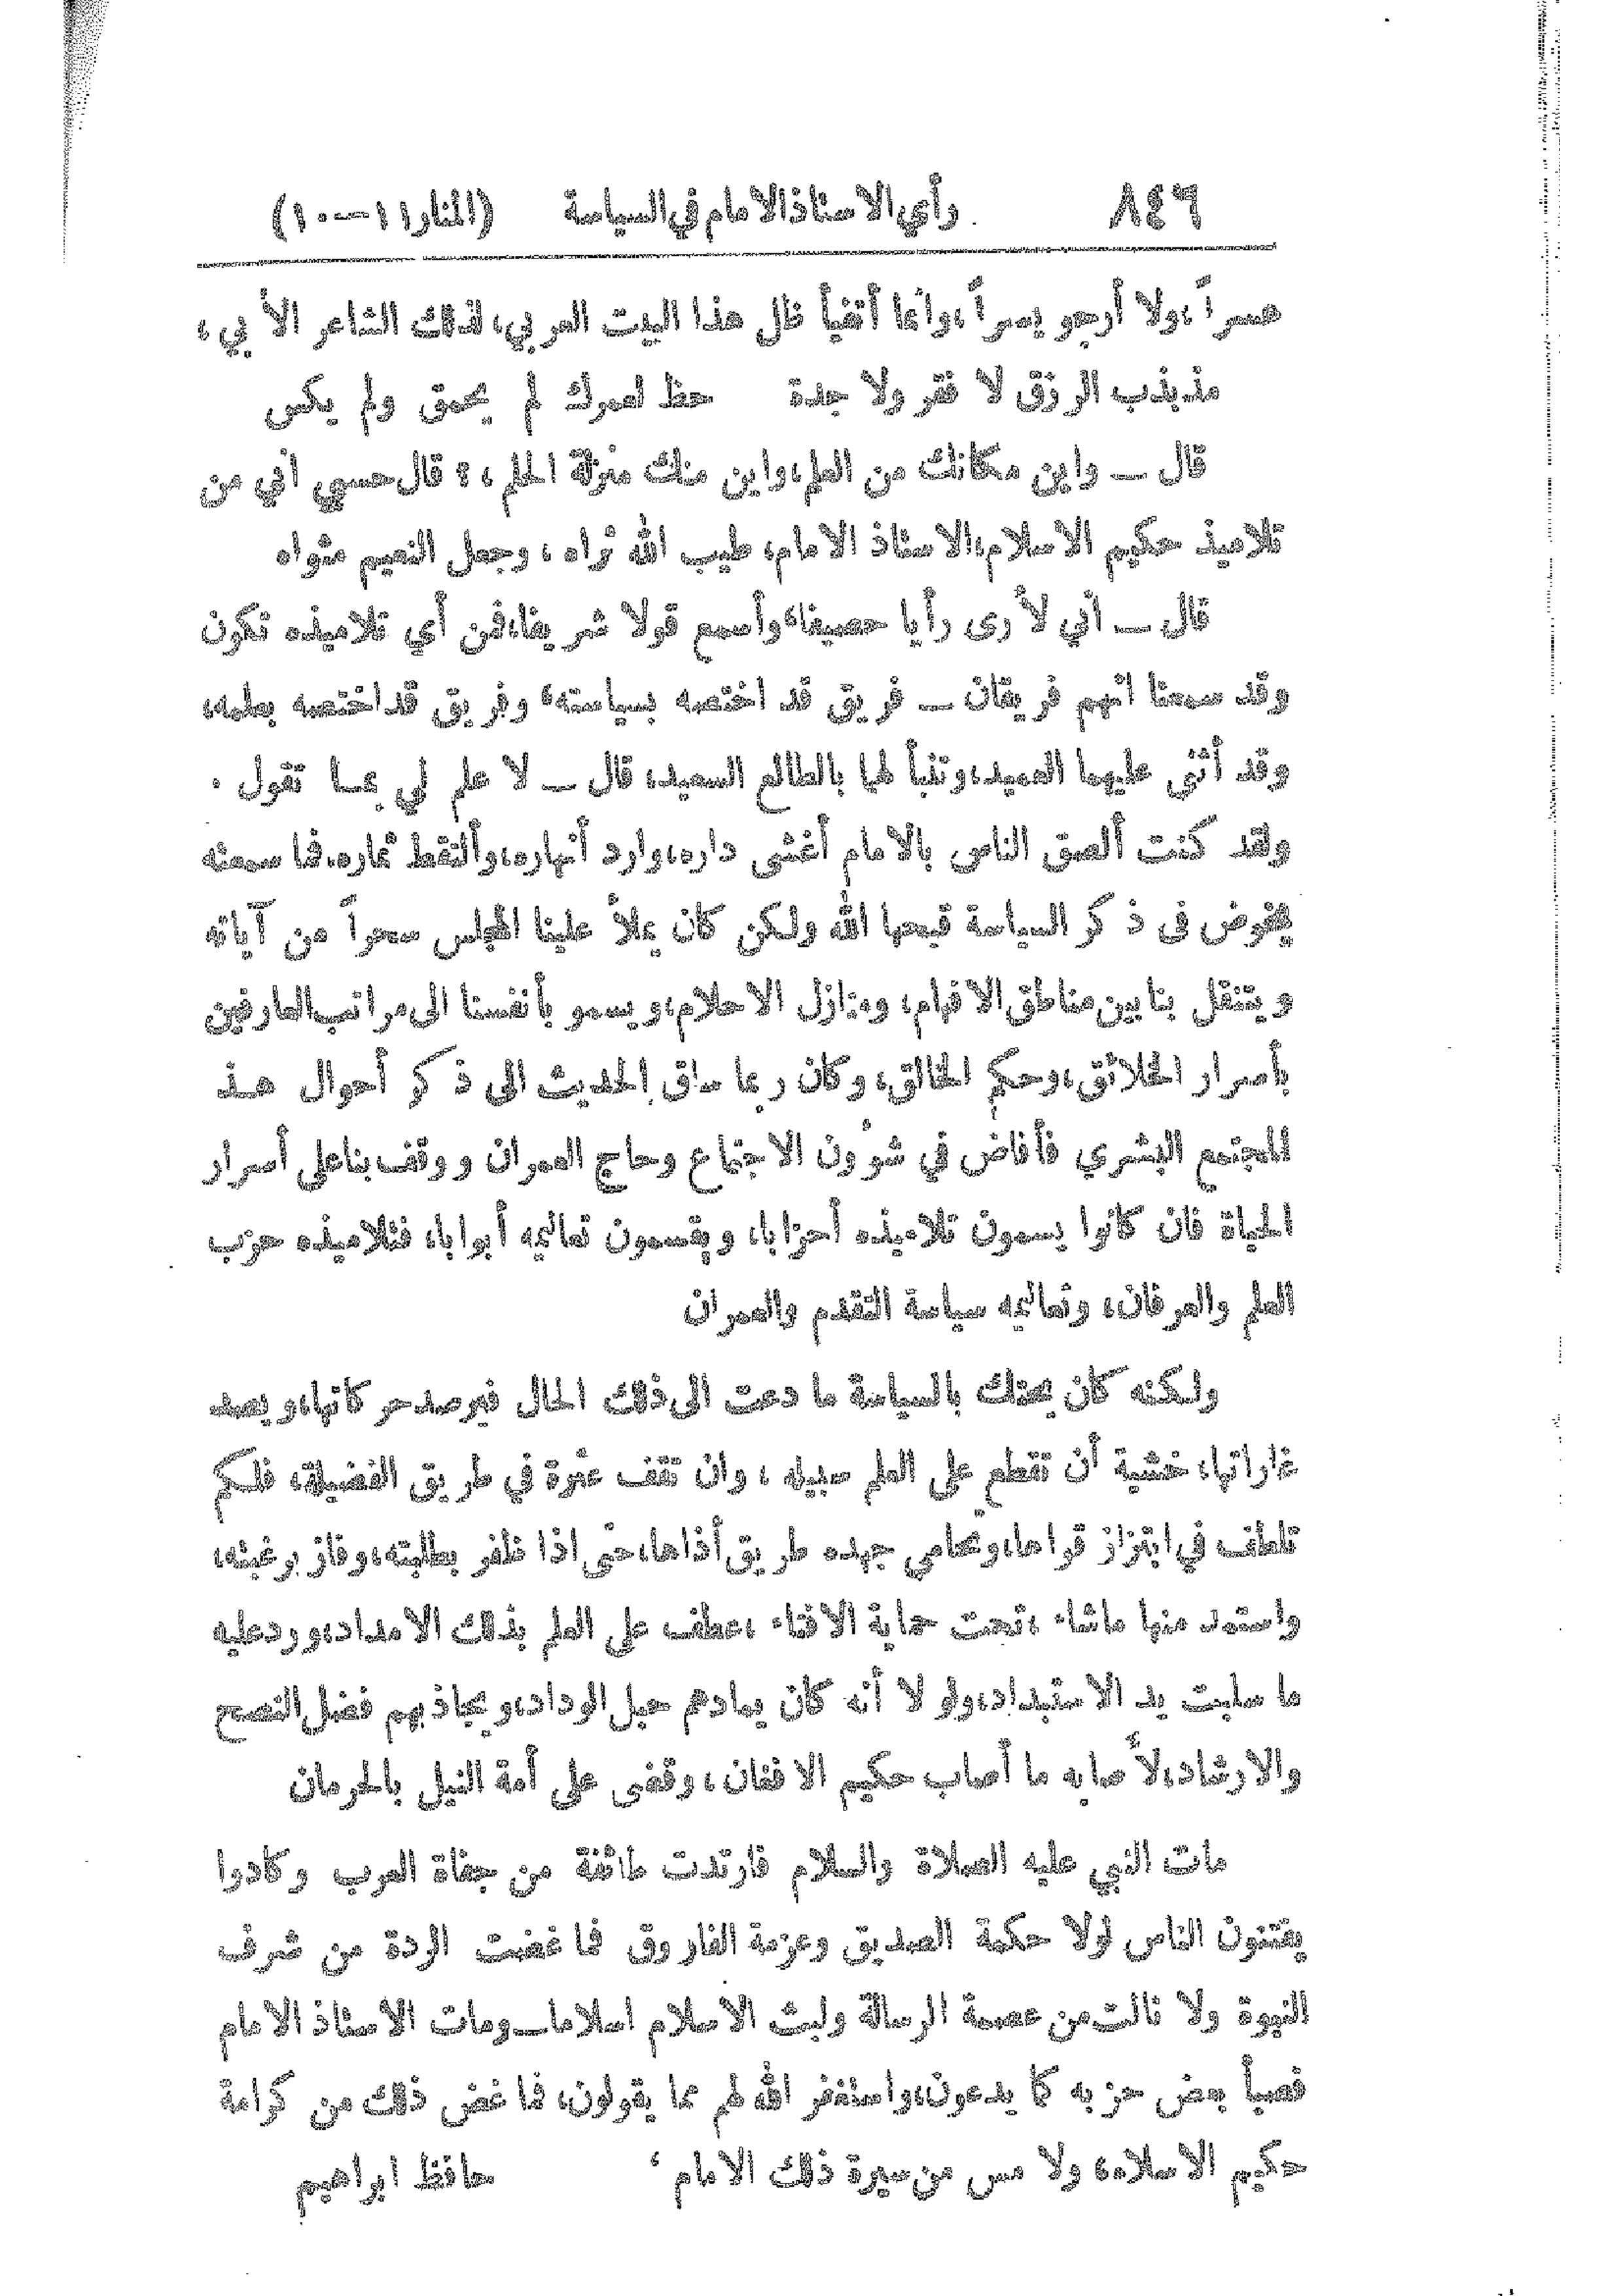 ٨٤٦ رأي الاستاذ الامام في السياسة (المنار ١١ــ١٠)
عسراً، ولا أرجو يسراً، وانما أتفيأ ظل هذا البيت العربي، لذلك الشاعر الأبي،
مذبذب الرزق لا فقر ولا جدة حظ لعمرك لم يحمق ولم يكس
قال ــ واين مكانك من العلم، واين منك منزلة الحلم، ؟ قال حسبي اني من
تلاميذ حكيم الاسلام، الاستاذ الامام، طيب الله ثراه، وجعل النعيم مثواه
قال ــ اني لأرى رأيا حصيفا، وأسمع قولا شريفا، فمن أي تلاميذه تكون
وقد سمعنا انهم فريقان ــ فريق قد اختصه بسياسته، وفريق قد اختصه بعلمه،
وقد أثنى عليهما العميد، وتنبأ لهما بالطالع السعيد، قال ــ لا علم لي بما تقول .
ولقد كنت ألصق الناس بالامام أغشى داره، وارد أنهاره، وألتقط ثماره، فما سمعته
يخوض في ذكر السياسة قبحها الله ولكن كان يملأ علينا المجلس سحراً من آياته
ويتنقل بنا بين مناطق الافهام، ومنازل الاحلام، ويسمو بأنفسنا الى مراتب العارفين
بأسرار الخلائق، وحكم الخالق، وكان ربما ساق الحديث الى ذكر أحوال هذ
المجتمع البشري فأفاض في شؤون الاجتماع وحاج العمران ووقف بنا على أسرار
الحياة فان كانوا يسمون تلاميذه أحزابا، ويقسمون تعاليمه أبوابا، فتلاميذه حزب
العلم والعرفان، وتعاليمه سياسة التقدم والعمران
ولكنه كان يحتك بالسياسة ما دعت الى ذلك الحال فيرصد حركاتها، ويصد
غاراتها، خشية أن تقطع على العلم سبيله، وان تقف عثرة في طريق الفضيلة، فلكم
تلطف في ابتزاز قواها، وتحامى جهده طريق أذاها، حتى اذا ظفر بطلبته، وفاز برغبته،
واستمد منها ماشاء، تحت حماية الافتاء، عطف على العلم بذلك الامداد، ورد عليه
ما سلبت يد الاستبداد، ولو لا أنه كان يمادهم حبل الوداد، ويجاذبهم فضل النصح
والارشاد، لأصابه ما أصاب حكيم الافغان، وقضى على أمة النيل بالحرمان
مات النبي عليه الصلاة والسلام فارتدت طائفة من جفاة العرب وكادوا
يفتنون الناس لولا حكمة الصديق وعزمة الفاروق فما غضت الردة من شرف
النبوة ولا نالت من عصمة الرسالة ولبث الاسلام اسلاما ــ ومات الأستاذ الامام
فصبأ بعض حزبه كما يدعون، واستغفر الله لهم مما يقولون، فما غض ذلك من كرامة
حكيم الاسلام، ولا مس من سيرة ذلك الامام ، حافظ ابراهيم